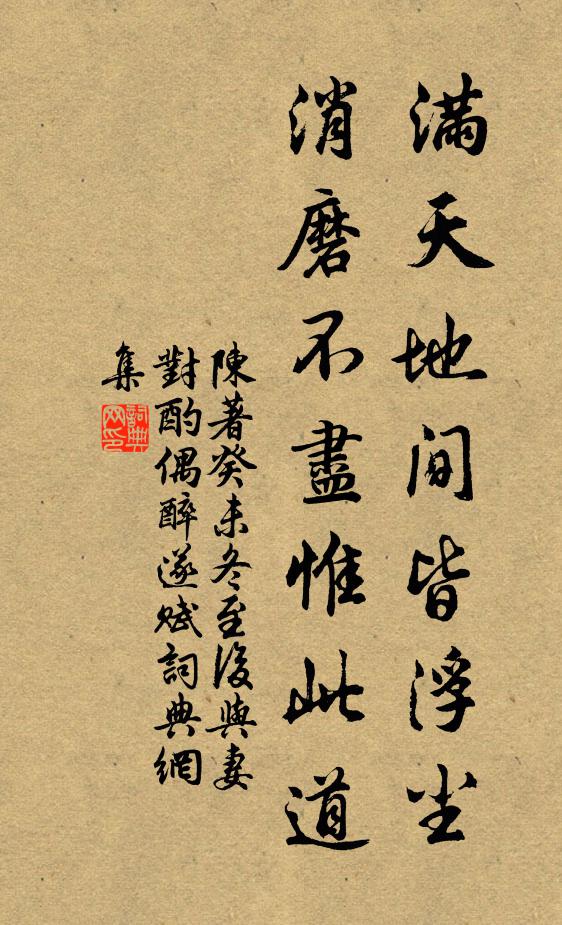 滿天地間皆浮坐
消磨不盡惟此道
陳著癸未冬至後與妻
對酌偶醉遂賦詞典網
集
詞典
网印